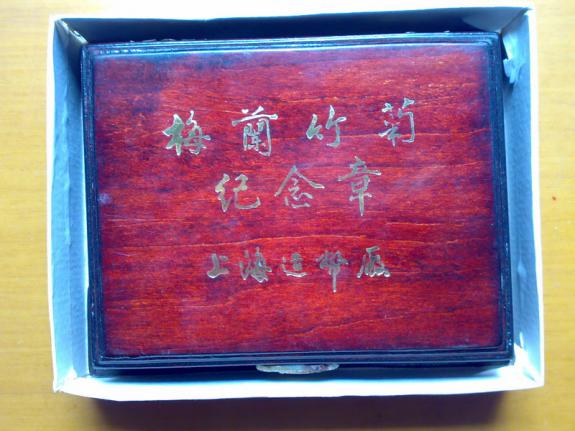 梅蘭竹菊
纪念章
上海造幣厰